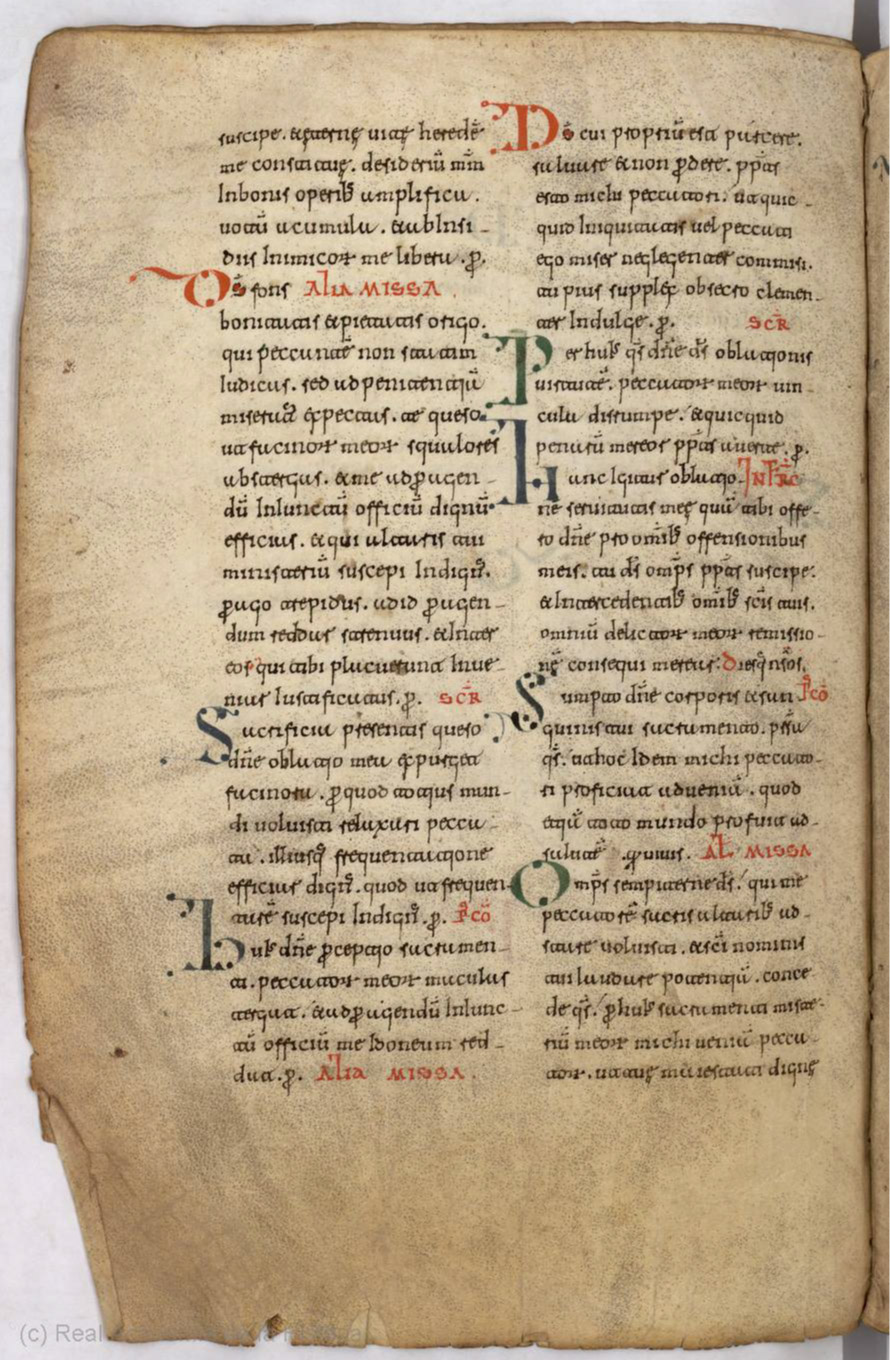 suscipe. & eterne uite heredē
me constitue. desideriū mm̄
In bonis operib; amplifica.
uotū acumula. & ab insi-
diis inimicoꝝ me libera. ꝑ.
Dš fons ALIA MISSA.
bonitatis & pietatis origo.
qui peccantē non statim
Iudicas. sed ad penitentiā
miseratꝰ expectas. te queso
ut facinoꝝ meoꝝ squalores
abstergas. & me ad ꝑagen-
dū Iniunctū officiū dignū
efficias. & qui altaris tui
ministeriū suscepi Indignꝰ.
ꝑago trepidus. ad id ꝑagen-
dum reddar strenuus. & Int̄
eos qui tibi placuerunt Inue-
niar Iustificatus. ꝑ. SCR̄
Sacrificia presentis queso
dn̄e oblatio mea expurget
facinora. ꝑ quod totius mun-
di uoluisti relaxari pecca-
ta. illiusq; frequentatione
efficiar dignꝰ. quod ut frequen-
tarē suscepi Indignꝰ. ꝑ. P̄CŌ
Huiꝰ dn̄e ꝑceptio sacramen-
ti. peccatoꝝ meoꝝ maculas
tergat. & ad ꝑagendū Iniunc-
tū officiū me Idoneum red-
dat. ꝑ. ALIA MISSA.
Dš cui propriū est parcere.
saluare & non ꝑdere. ꝓpitiꝰ
esto michi peccatori. ut quic-
quid Iniquitatis uel peccati
ego miser neglegenter commisi.
tu pius supplex obsecro clemen-
ter Indulge. ꝑ. SCR̄
Per huiꝰ qs̄ dn̄e ds̄ oblationis
uirtutē. peccatoꝝ meoꝝ uin-
cula disrumpe. & quicquid
penarū mereor ꝓpitiꝰ auerte. ꝑ.
Hanc Igitur oblatio- INFRC̄
nē seruitutis meę quā tibi offe-
ro dn̄e pro om̄ib; offensionibus
meis. tu ds̄ omp̄s ꝓpitiꝰ suscipe.
& Intercedentib; om̄ib; sc̄is tuis.
omniū delictoꝝ meoꝝ remissio-
nē consequi merear. diesq; nr̄os. P̄CŌ
Sumpto dn̄e corporis & san
guinis tui sacramento. presta
qs̄. ut hoc Idem michi peccato-
ri proficiat ad ueniā. quod
& qd̄ toto mundo profuit ad-
salutē. qui uiuis. AL MISSA
Omp̄s sempiterne ds̄. qui me
peccatorē sacris altarib; ad-
stare uoluisti. & sc̄i nominis
tui laudare potentiā. conce
de qs̄. ꝑ huiꝰ sacramenti miste-
riū meoꝝ michi ueniā pecca-
toꝝ. ut tuę maiestati digne